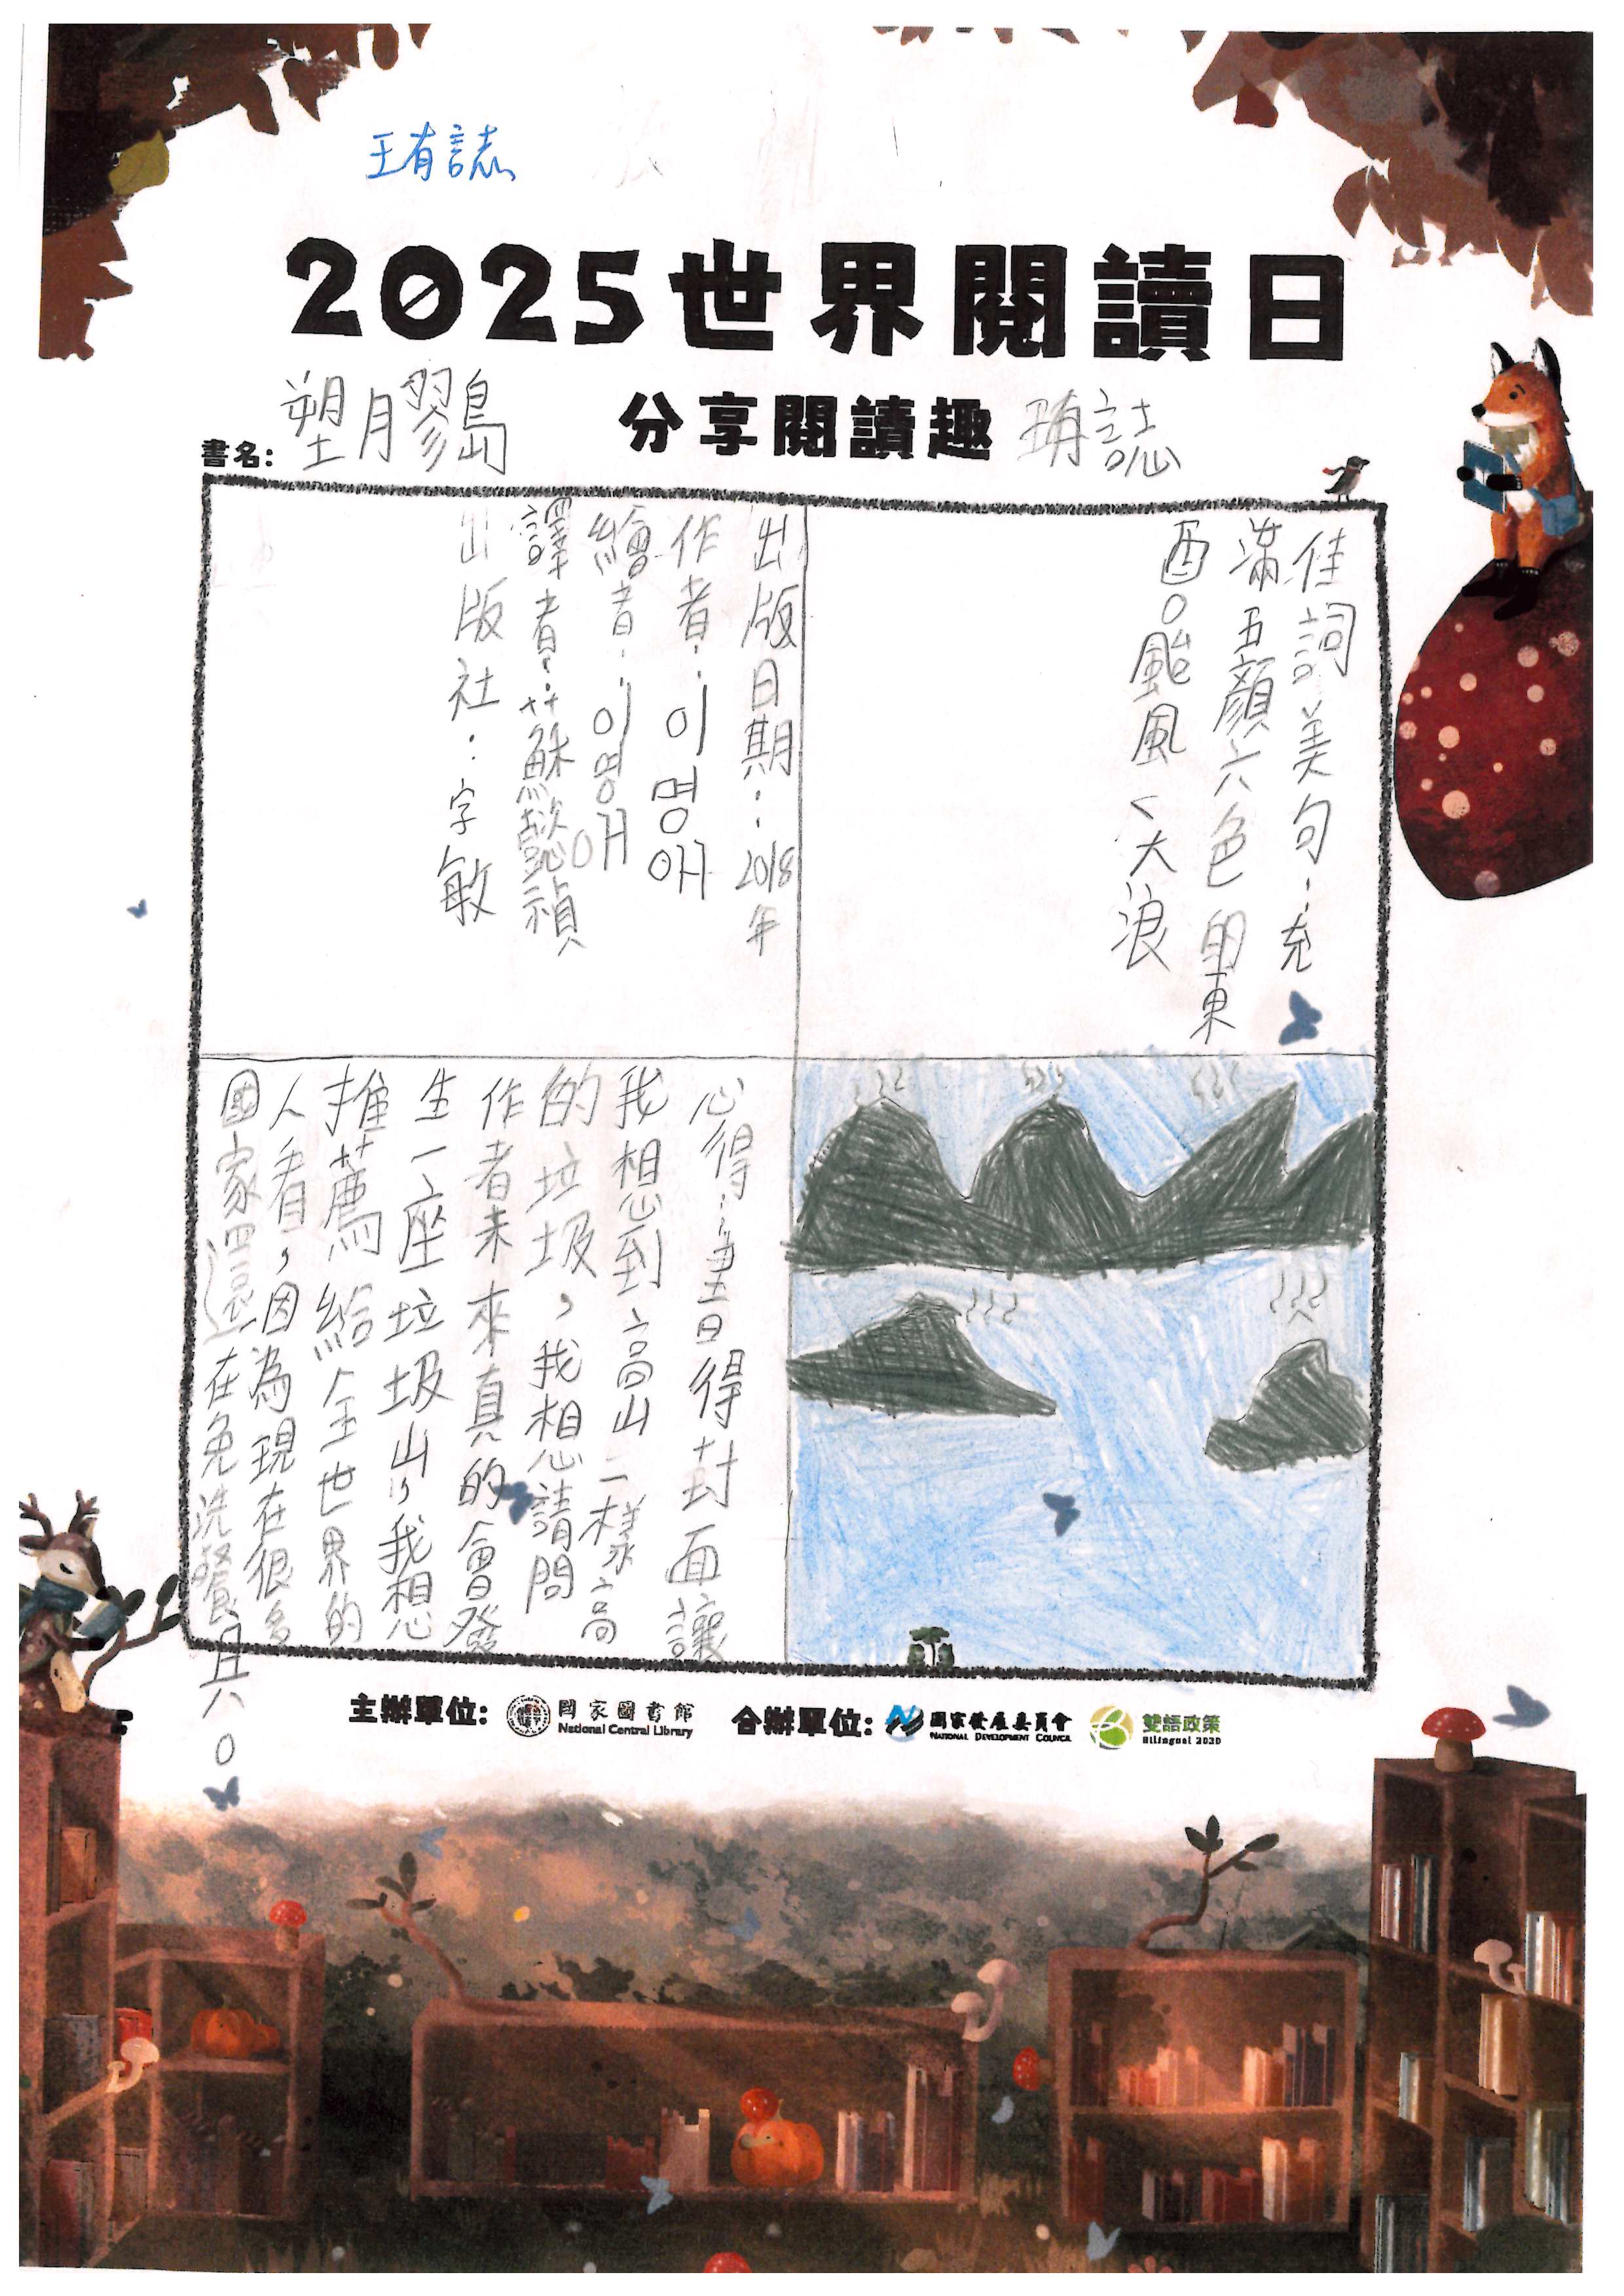 王宥誌
2025世界閱讀日
分享閱讀趣
宥誌
書名:
塑膠島
佳詞美句:充
滿五顏六色的東
西。颱風、大浪
出版日期:2018
年
作者:이명애
繪者:이명애
譯者:蘇懿禎
出版社:字畝
心得:書得封面讓
我想到高山一樣高
的垃圾,我想請問
作者未來真的會發
生一座垃圾山,我想
推薦給全世界的
人看,因為現在很多
國家還在免洗餐具。
主辦單位:
國家圖書館
National Central Library
合辦單位:
國家發展委員會
NATIONAL DEVELOPMENT COUNCIL
雙語政策
Bilingual 2030